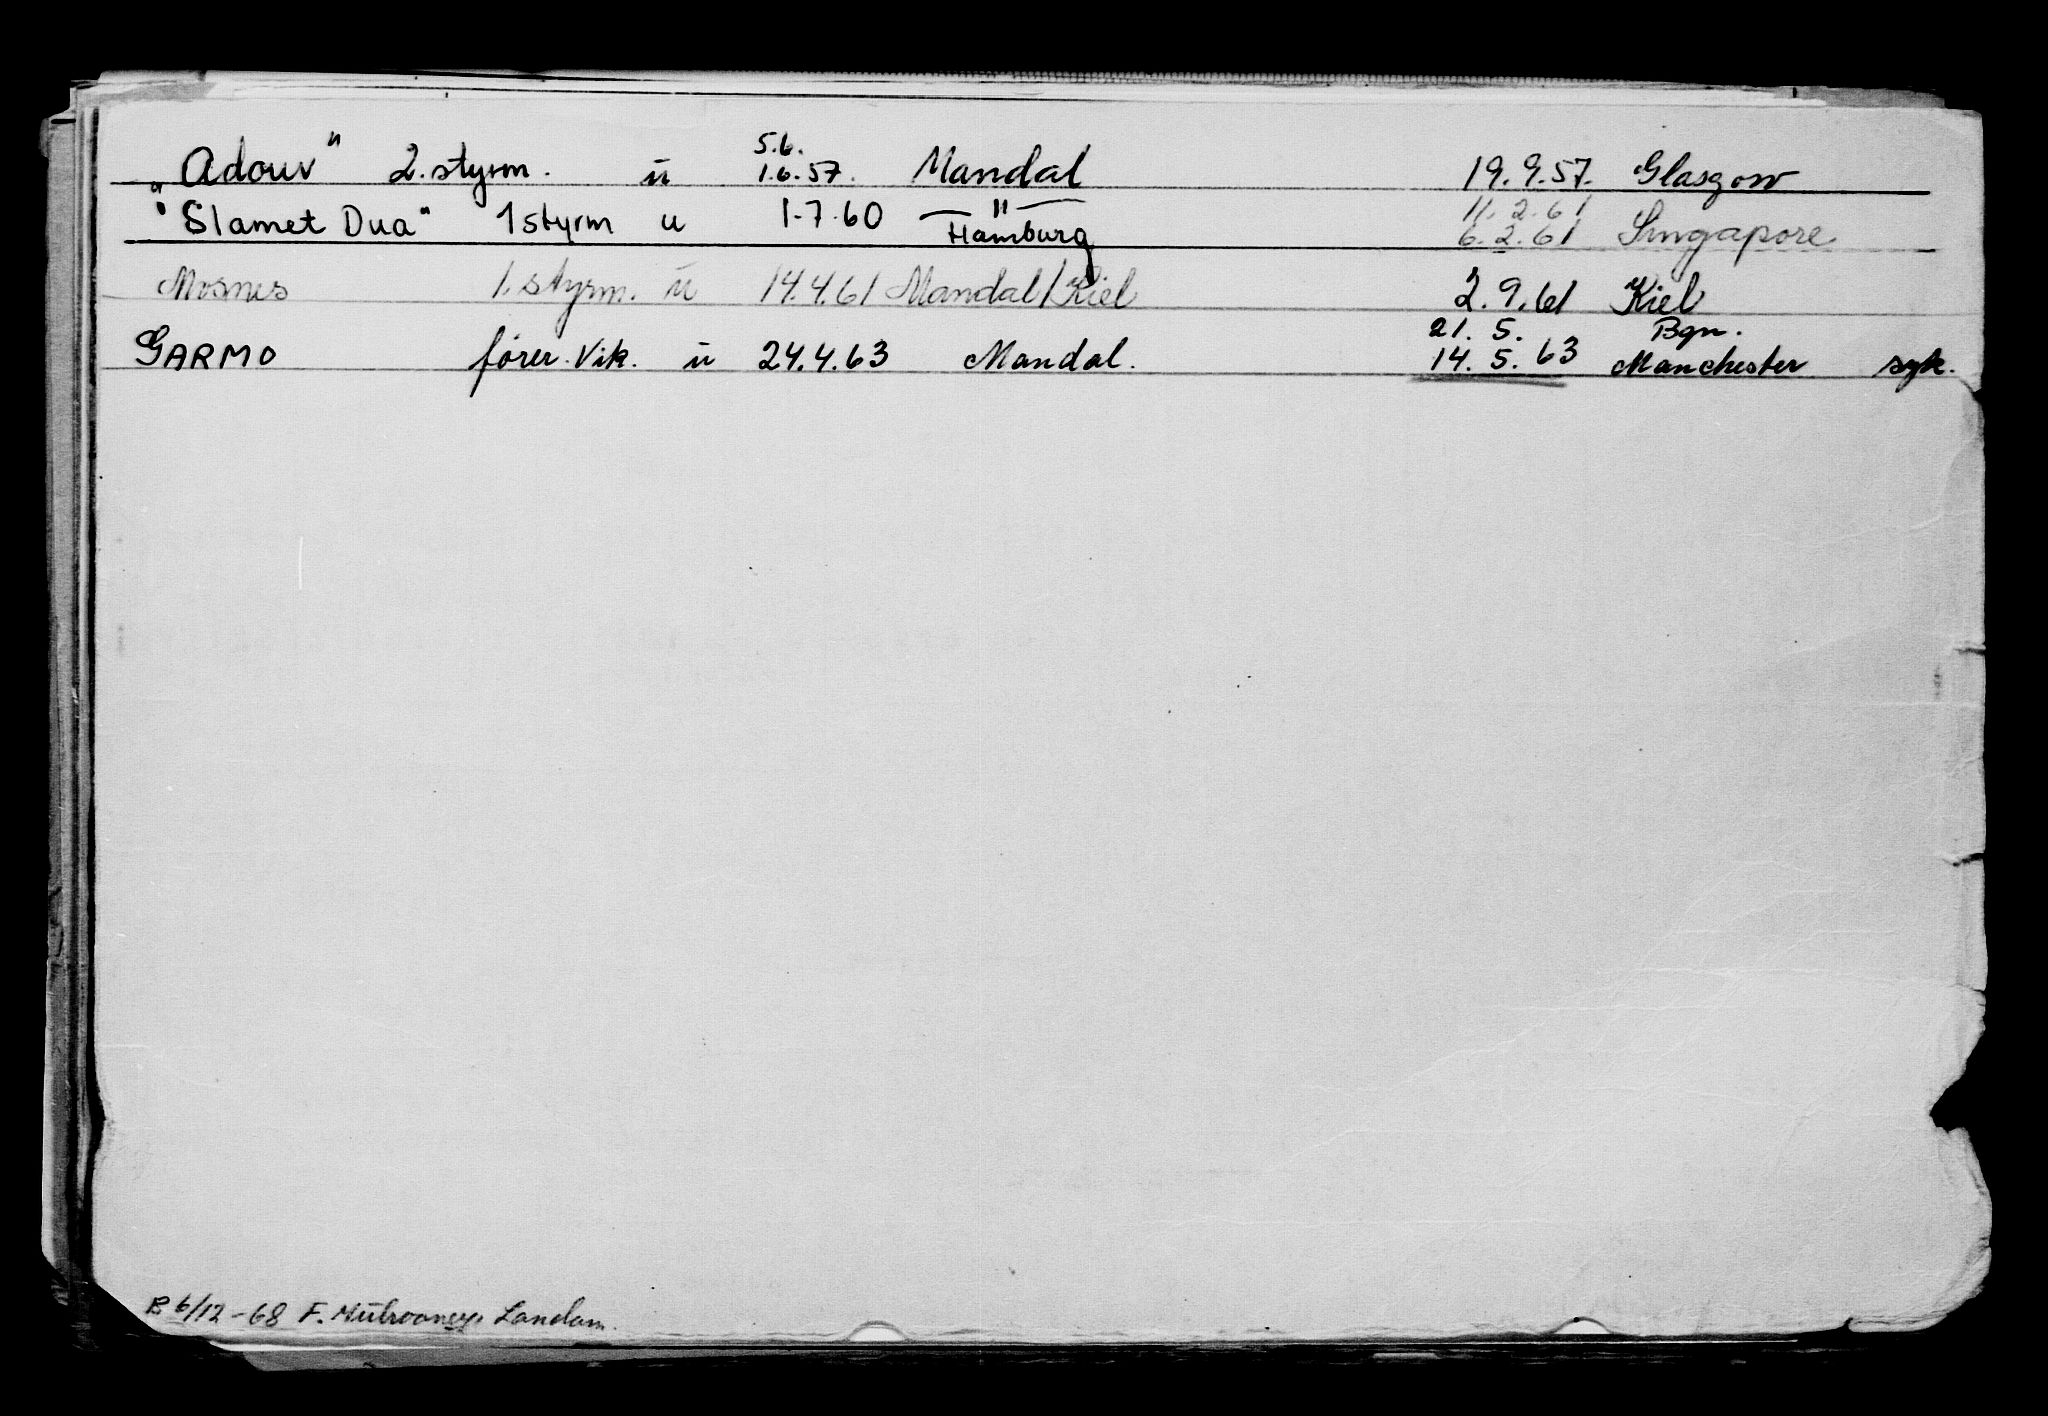 5.6.
"Adour" 2. styrm. u 1.6.57. Mandal 19.9.57. Glasgow
11.2.61
"Slamet Dua" 1 styrm u 1-7-60 — " — Hamburg 6.2.61 Singapore.
Mosnes 1. styrm. u 14.4.61 Mandal/Kiel 2.9.61 Kiel
21. 5. Bgn.
GARMO fører. Vik. u 24.4.63 Mandal. 14. 5. 63 Manchester syk.
B 6/12-68 F.